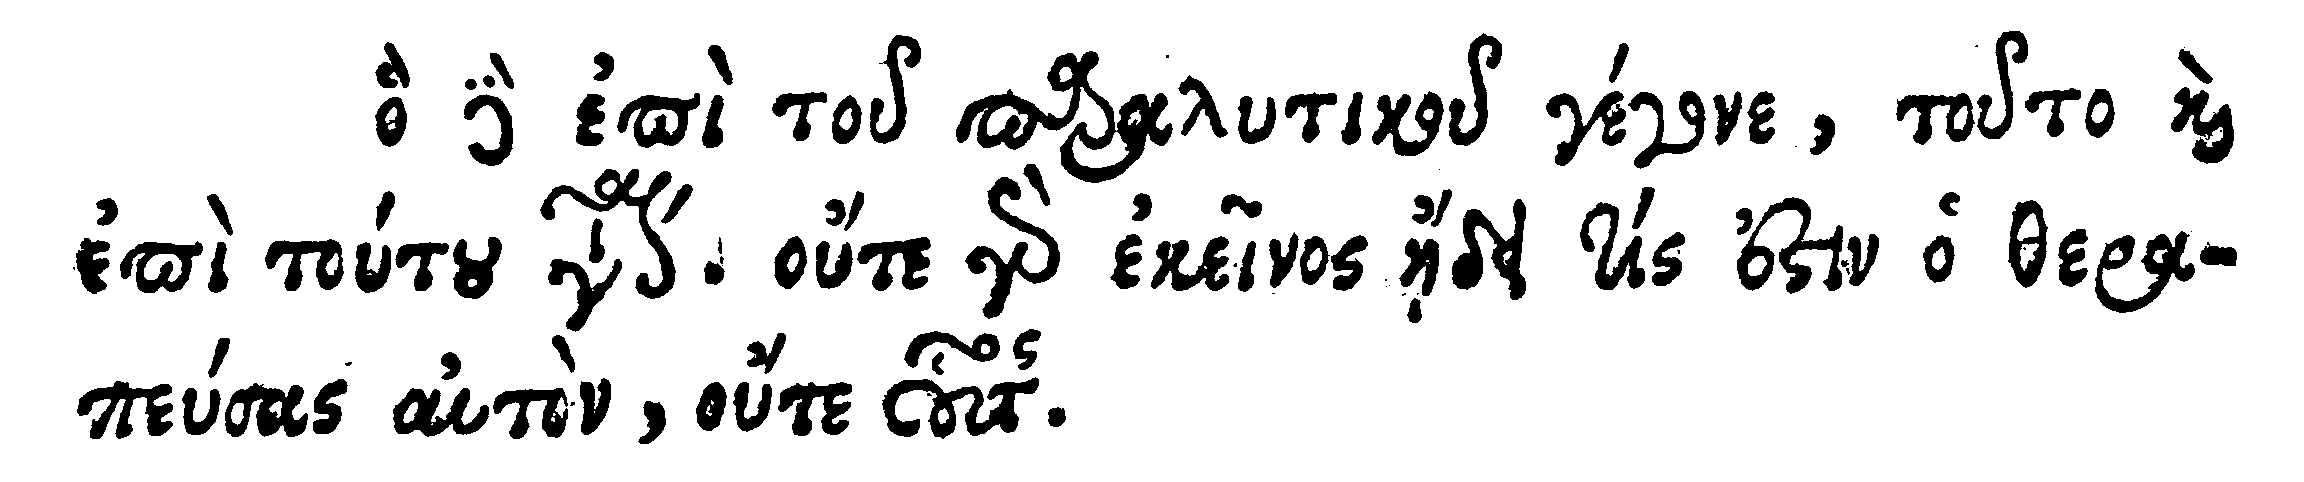 ὃ δὲ ἐπὶ τοῦ παραλυτικοῦ γέγονε, τοῦτο καὶ
ἐπὶ τούτου γίνεται. οὔτε γὰρ ἐκεῖνος ᾔδει τίς ἐστιν ὁ θερα-
πεύσας αὐτὸν, οὔτε οὗτος.